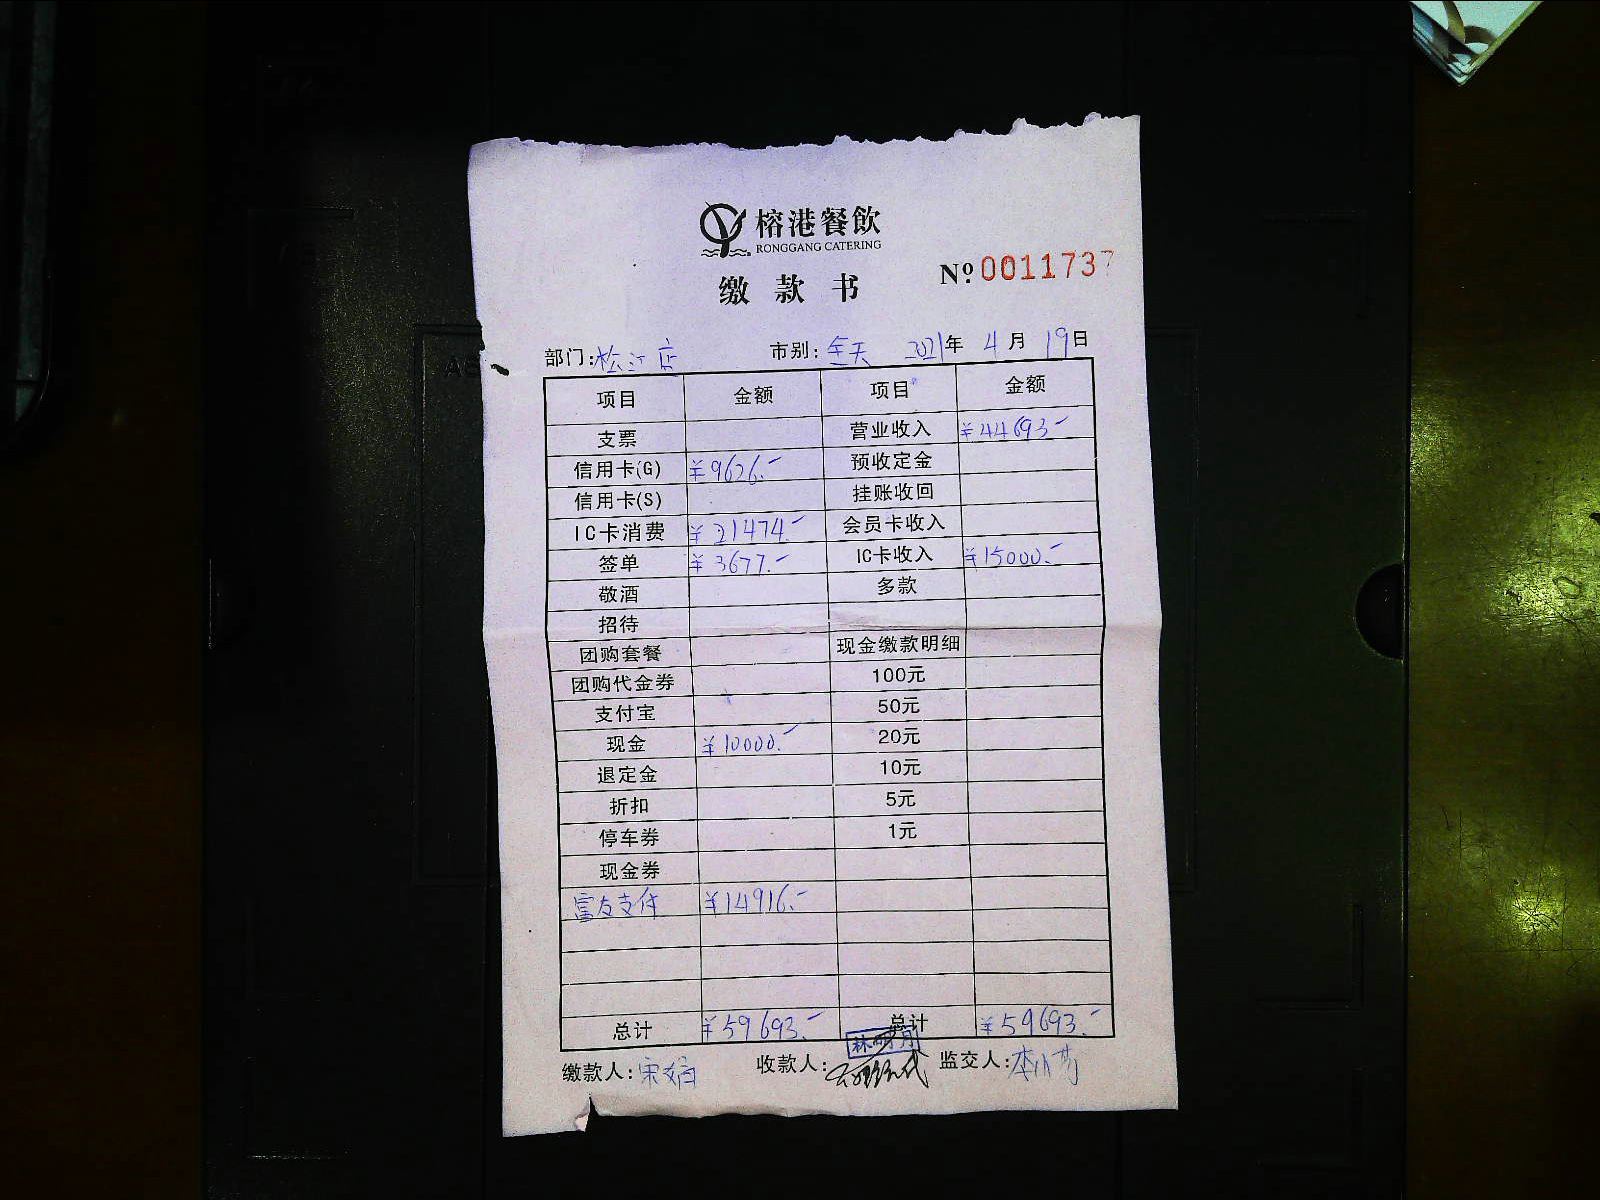 榕港餐飲
RONGGANG CATERING
缴款书
No.0011737
部门:松江店 市别:全天 2021年4月19日
项目 金额 项目 金额
支票 营业收入 ¥44693.-
信用卡(G) ¥9626.- 预收定金
信用卡(S) 挂账收回
IC卡消费 ¥21474.- 会员卡收入
签单 ¥3677.- IC卡收入 ¥15000.-
敬酒 多款
招待
团购套餐 现金缴款明细
团购代金券 100元
支付宝 50元
现金 ¥10000.- 20元
退定金 10元
折扣 5元
停车券 1元
现金券
富友支付 ¥14916.-
总计 ¥59693.- 总计 ¥59693.-
林明月
缴款人: 收款人: 监交人: